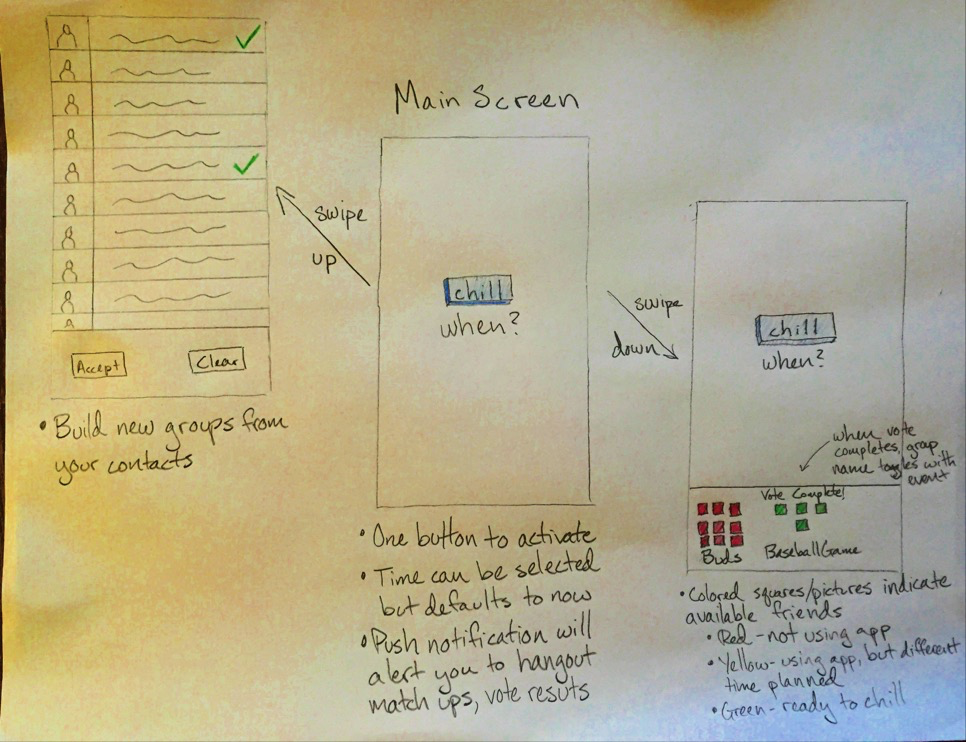 Main Screen
Accept
Clear
• Build new groups from
your contacts
swipe
up
chill
when?
• One button to activate
• Time can be selected
but defaults to now
• Push notification will
alert you to hangout
match ups, vote resuts
swipe
down
chill
when?
when vote
completes, group
name toggles with
event
Vote Complete!
Buds
Baseball Game
• Colored squares/pictures indicate
available friends
• Red - not using app
• Yellow - using app, but different
time planned
• Green - ready to chill